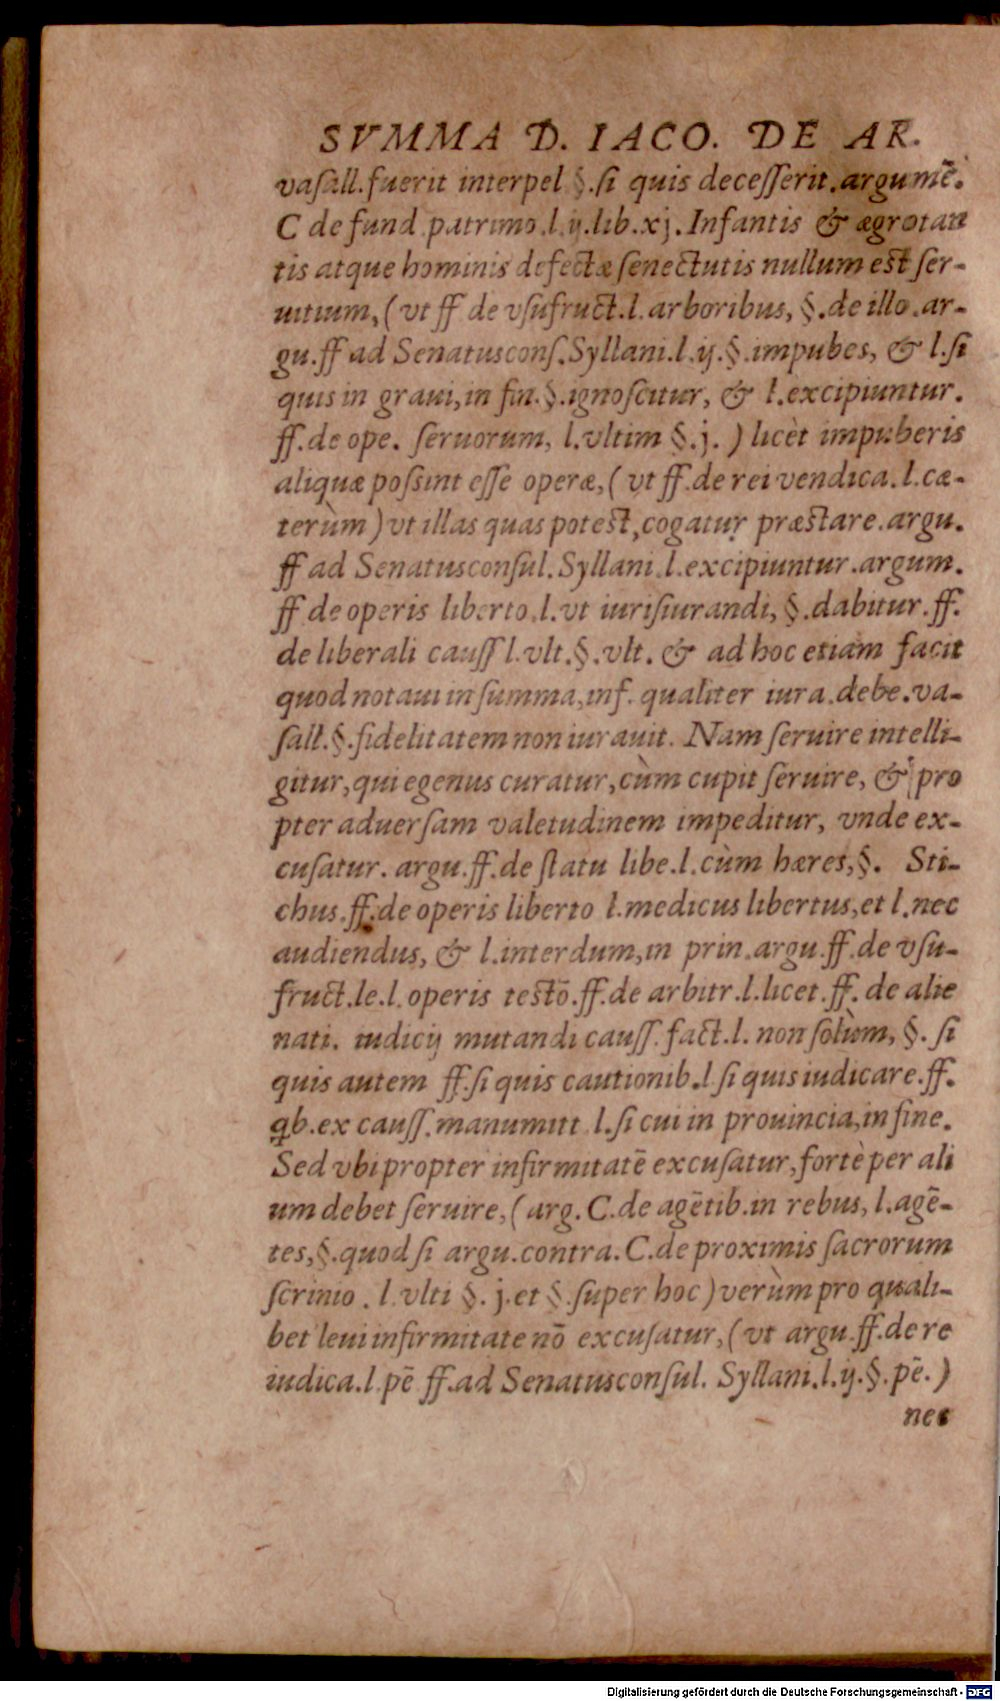 SVMMA D. IACO. DE AR.
vaſall.fuerit interpel §.ſi quis deceſſerit.argumē.
C de fund patrimo.l.ij.lib.xj. Infantis & ægrotan
tis atque hominis defectæ ſenectutis nullum eſt ſer-
uitium, (vt ff de vſufruct.l.arboribus, §.de illo.ar-
gu.ff ad Senatusconſ.Syllani.l.ij.§.impubes, & l.ſi
quis in graui,in fin.§.ignoſcitur, & l.excipiuntur.
ff.de ope. ſeruorum, l.vltim §.j.) licèt impuberis
aliquæ poſsint eſſe operæ,(vt ff.de rei vendica.l.cæ-
terùm) vt illas quas poteſt,cogatur præſtare.argu.
ff ad Senatusconſul.Syllani.l.excipiuntur.argum.
ff de operis liberto.l.vt iuriſiurandi, §.dabitur.ff.
de liberali cauſſ l.vlt.§.vlt. & ad hoc etiam facit
quod notaui in ſumma,inf. qualiter iura.debe.va-
ſall.§.fidelitatem non iurauit. Nam ſeruire intelli-
gitur,qui egenus curatur,cùm cupit ſeruire, & pro
pter aduerſam valetudinem impeditur, vnde ex-
cuſatur. argu.ff.de ſtatu libe.l.cùm hæres,§. Sti-
chus.ff.de operis liberto l.medicus libertus,et l.nec
audiendus, & l.interdum,in prin.argu.ff.de vſu-
fruct.le.l.operis teſtō.ff.de arbitr.l.licet.ff. de alie
nati. iudicij mutandi cauſſ.fact.l. non ſolùm, §. ſi
quis autem ff.ſi quis cautionib.l ſi quis iudicare.ff.
qb.ex cauſſ.manumitt l.ſi cui in prouincia,in fine.
Sed vbi propter infirmitatē excuſatur,fortè per ali
um debet ſeruire,(arg.C.de agētib.in rebus, l.agē-
tes,§.quod ſi argu.contra.C.de proximis ſacrorum
ſcrinio . l.vlti §. j.et §.ſuper hoc) verùm pro quali-
bet leui infirmitate nō excuſatur,(vt argu.ff.de re
iudica.l.pē ff.ad Senatusconſul. Syllani.l.ij.§.pē.)
nec
Digitalisierung gefördert durch die Deutsche Forschungsgemeinschaft - DFG